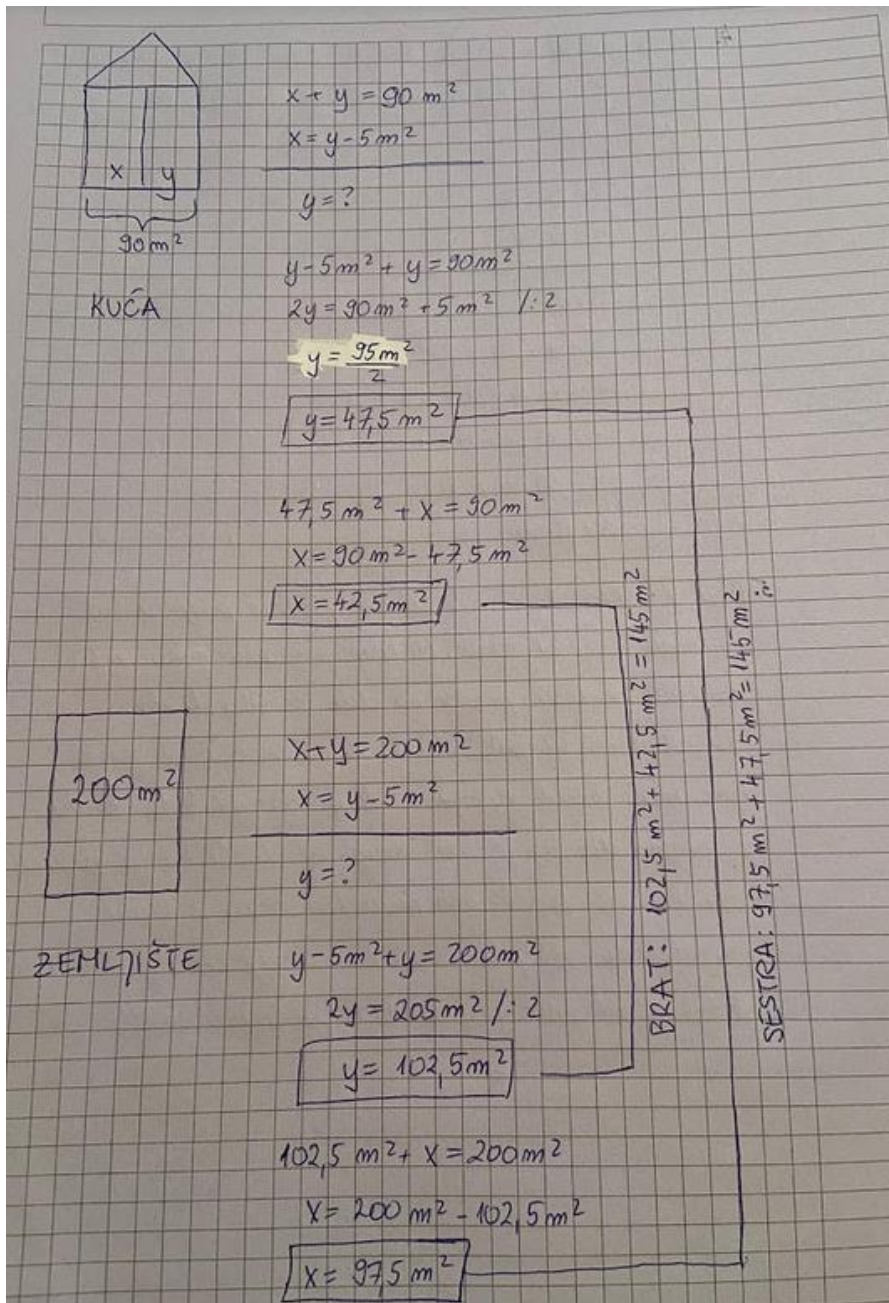 x + y = 90 m²
x = y - 5m²
x y
y = ?
90m²
y - 5m² + y = 90m²
KUĆA
2y = 90m² + 5m² /: 2
y = 95m²/2
y = 47,5 m²
47,5 m² + x = 90m²
x = 90m² - 47,5 m²
x = 42,5m²
x + y = 200m²
200m²
x = y - 5m²
y = ?
ZEMLJIŠTE
y - 5m² + y = 200m²
2y = 205m² /: 2
y = 102,5m²
102,5 m² + x = 200m²
x = 200m² - 102,5m²
x = 97,5 m²
BRAT: 102,5 m² + 42,5 m² = 145m²
SESTRA: 97,5 m² + 47,5m² = 145m²